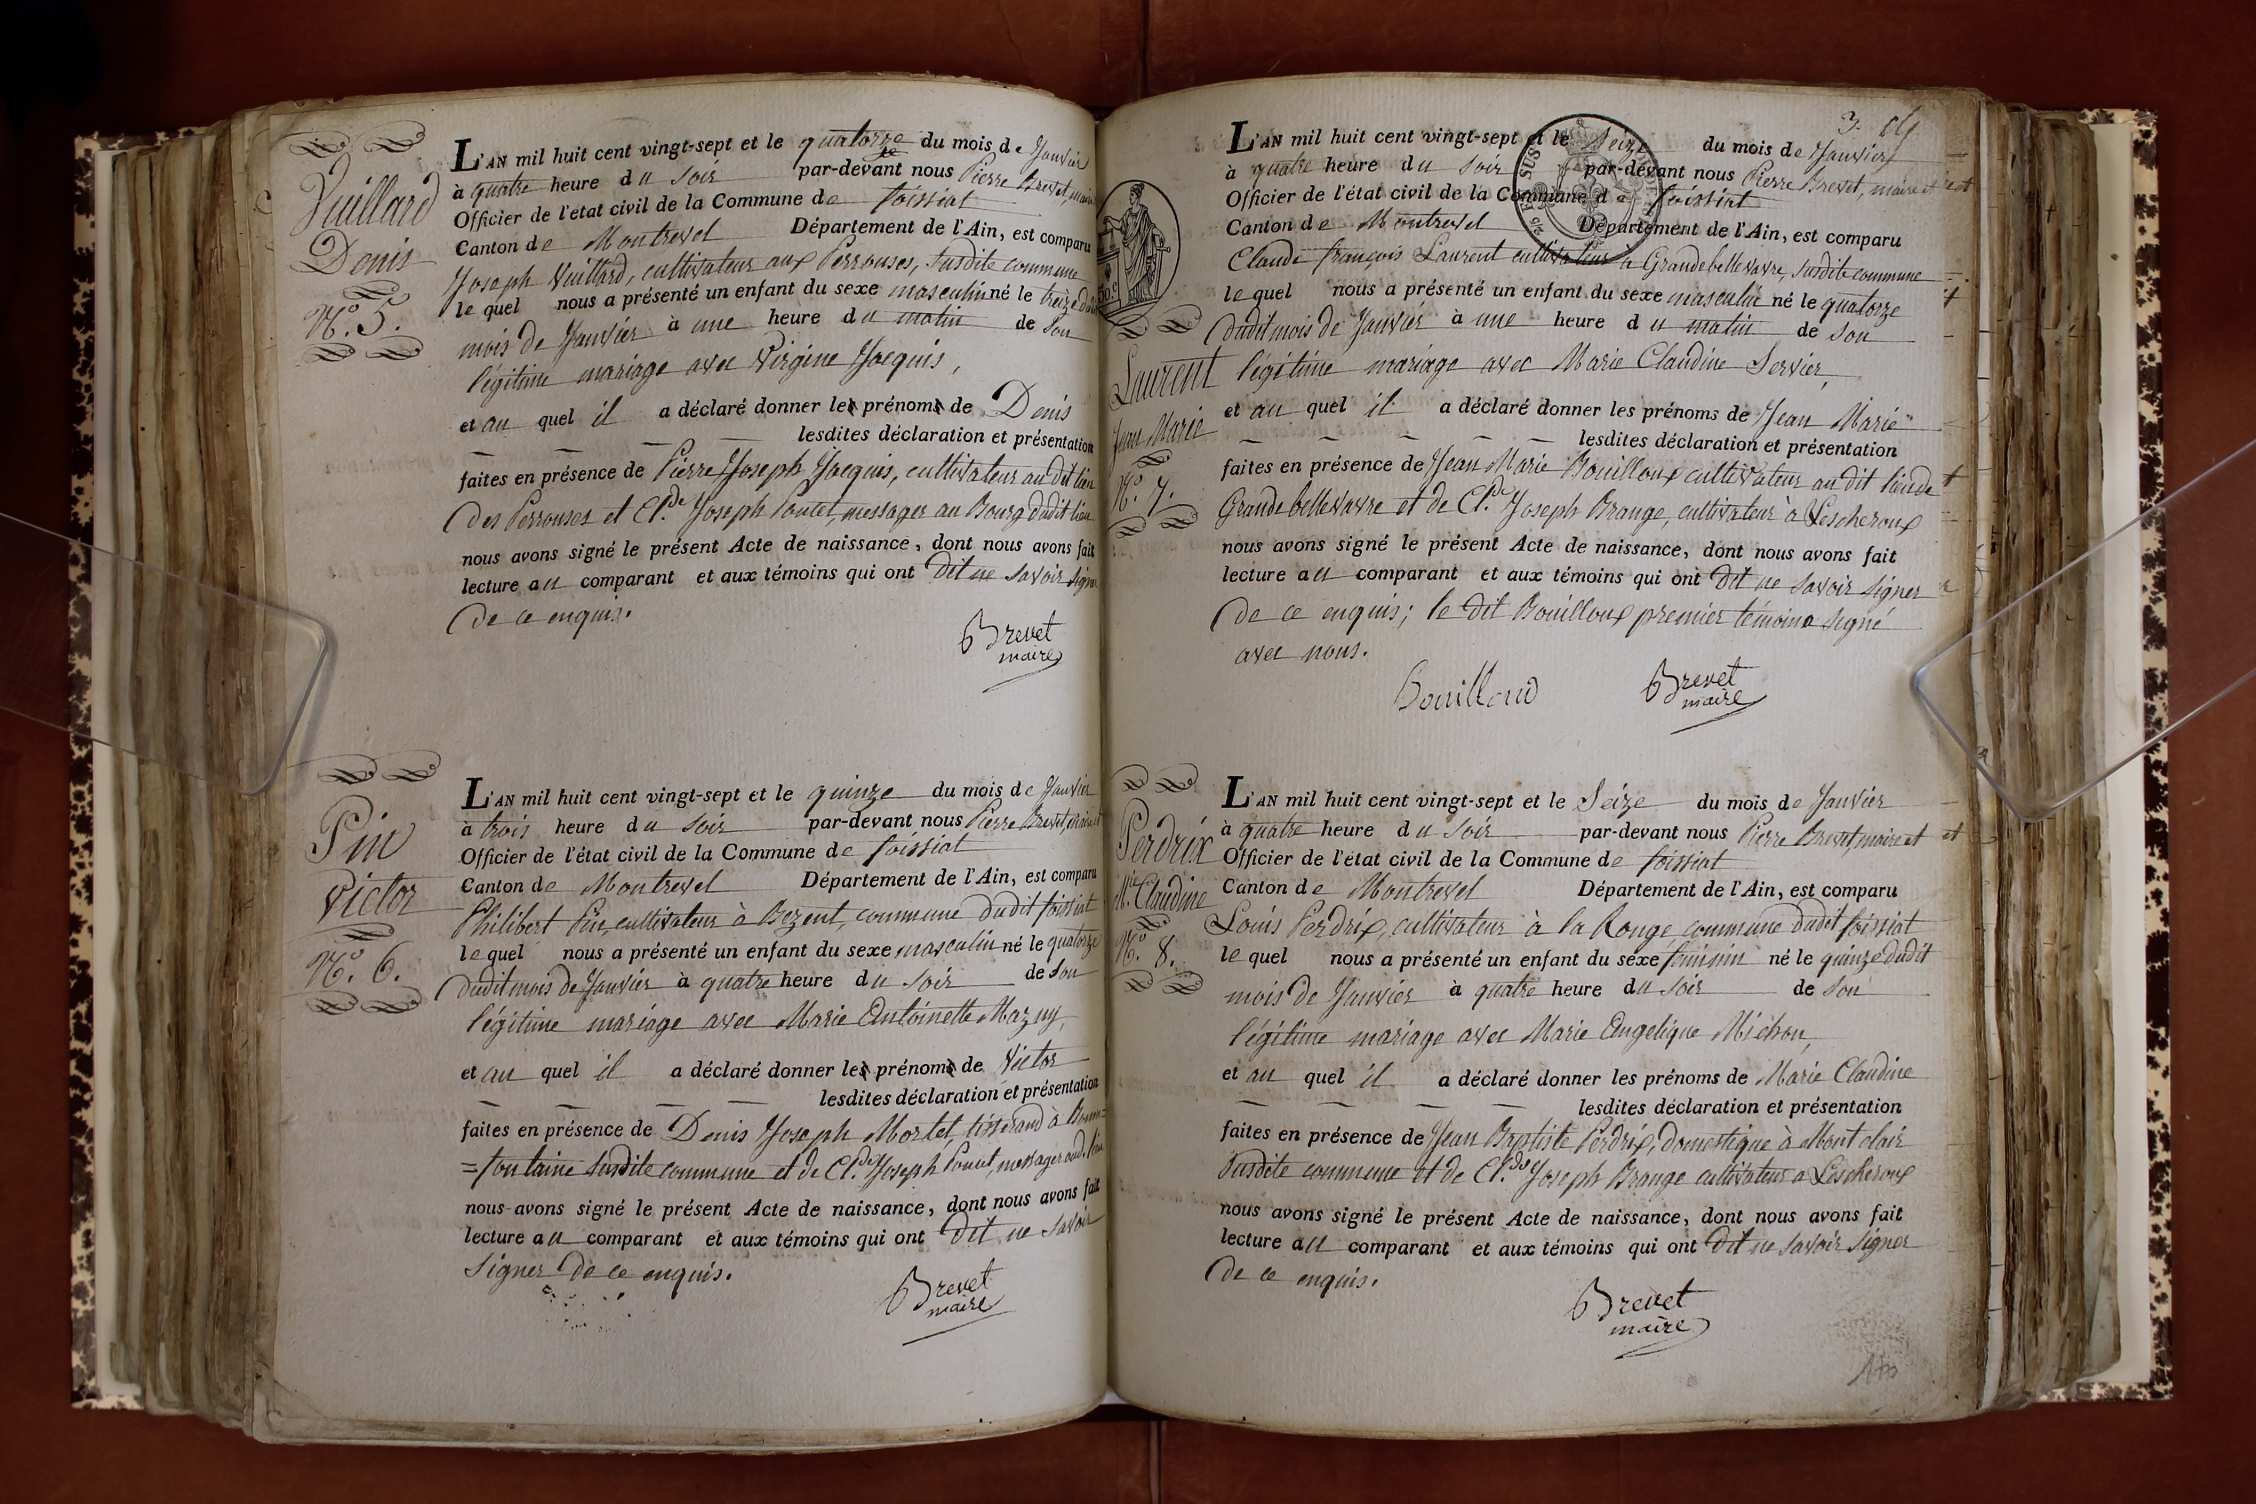 Vuillard
Denis
N.º 5.
L'AN mil huit cent vingt-sept et le quatorze du mois de Janvier
à quatre heure du soir par-devant nous Pierre Brevet, maire
Officier de l'état civil de la Commune de foissiat
Canton de Montrevel Département de l'Ain, est comparu
Joseph Vuillard, cultivateur aux Perrouses, susdite commune
le quel nous a présenté un enfant du sexe masculin né le treize dudit
mois de Janvier à une heure du matin de son
légitime mariage avec Virgine Jacquis,
et au quel il a déclaré donner les prénoms de Denis
lesdites déclaration et présentation
faites en présence de Pierre Joseph Jacquis, cultivateur au dit lieu
des Perrouses et Cl.de Joseph Poncet, messager au Bourg dudit lieu
nous avons signé le présent Acte de naissance, dont nous avons fait
lecture au comparant et aux témoins qui ont dit ne savoir signer
de ce enquis.
Brevet
maire
Pin
Victor
N.º 6.
L'AN mil huit cent vingt-sept et le quinze du mois de Janvier
à trois heure du soir par-devant nous Pierre Brevet, maire et
Officier de l'état civil de la Commune de foissiat
Canton de Montrevel Département de l'Ain, est comparu
Philibert Pin, cultivateur à Bezent, commune dudit foissiat
le quel nous a présenté un enfant du sexe masculin né le quatorze
dudit mois de Janvier à quatre heure du soir de son
légitime mariage avec Marie Antoinette Mazuy,
et au quel il a déclaré donner les prénoms de Victor
lesdites déclaration et présentation
faites en présence de Denis Joseph Mortet, tisserand à Bonne=
=fontaine susdite commune et de Cl.de Joseph Poncet, messager aud. lieu
nous avons signé le présent Acte de naissance, dont nous avons fait
lecture au comparant et aux témoins qui ont dit ne savoir
signer de ce enquis.
Brevet
maire
3.
50.c
Laurent
Jean Marie
N.º 7.
L'AN mil huit cent vingt-sept et le seize du mois de Janvier
à quatre heure du soir par-devant nous Pierre Brevet, maire et
Officier de l'état civil de la Commune de foissiat
Canton de Montrevel Département de l'Ain, est comparu
Claude françois Laurent cultivateur à Grandebellevavre, susdite commune
le quel nous a présenté un enfant du sexe masculin né le quatorze
dudit mois de Janvier à une heure du matin de son
légitime mariage avec Marie Claudine Servier,
et au quel il a déclaré donner les prénoms de Jean Marie
lesdites déclaration et présentation
faites en présence de Jean Marie Bouilloux cultivateur au dit lieu de
Grande bellevavre et de Cl.de Joseph Brange, cultivateur à Lescheroux
nous avons signé le présent Acte de naissance, dont nous avons fait
lecture au comparant et aux témoins qui ont dit ne savoir signer
de ce enquis; le dit Bouilloux premier témoin a signé
avec nous.
Bouilloud Brevet
maire
Perdrix
M.ie Claudine
N.º 8.
L'AN mil huit cent vingt-sept et le Seize du mois de Janvier
à quatre heure du soir par-devant nous Pierre Brevet, maire et
Officier de l'état civil de la Commune de foissiat
Canton de Montrevel Département de l'Ain, est comparu
Louis Perdrix, cultivateur à la Ronge, commune dudit foissiat
le quel nous a présenté un enfant du sexe féminin né le quinze dudit
mois de Janvier à quatre heure du soir de son
légitime mariage avec Marie Angelique Michon,
et au quel il a déclaré donner les prénoms de Marie Claudine
lesdites déclaration et présentation
faites en présence de Jean Baptiste Perdrix, domestique à Mont clair
susdite commune et de Cl.de Joseph Brange cultivateur à Lescheroux
nous avons signé le présent Acte de naissance, dont nous avons fait
lecture au comparant et aux témoins qui ont dit ne savoir signer
de ce enquis.
Brevet
maire